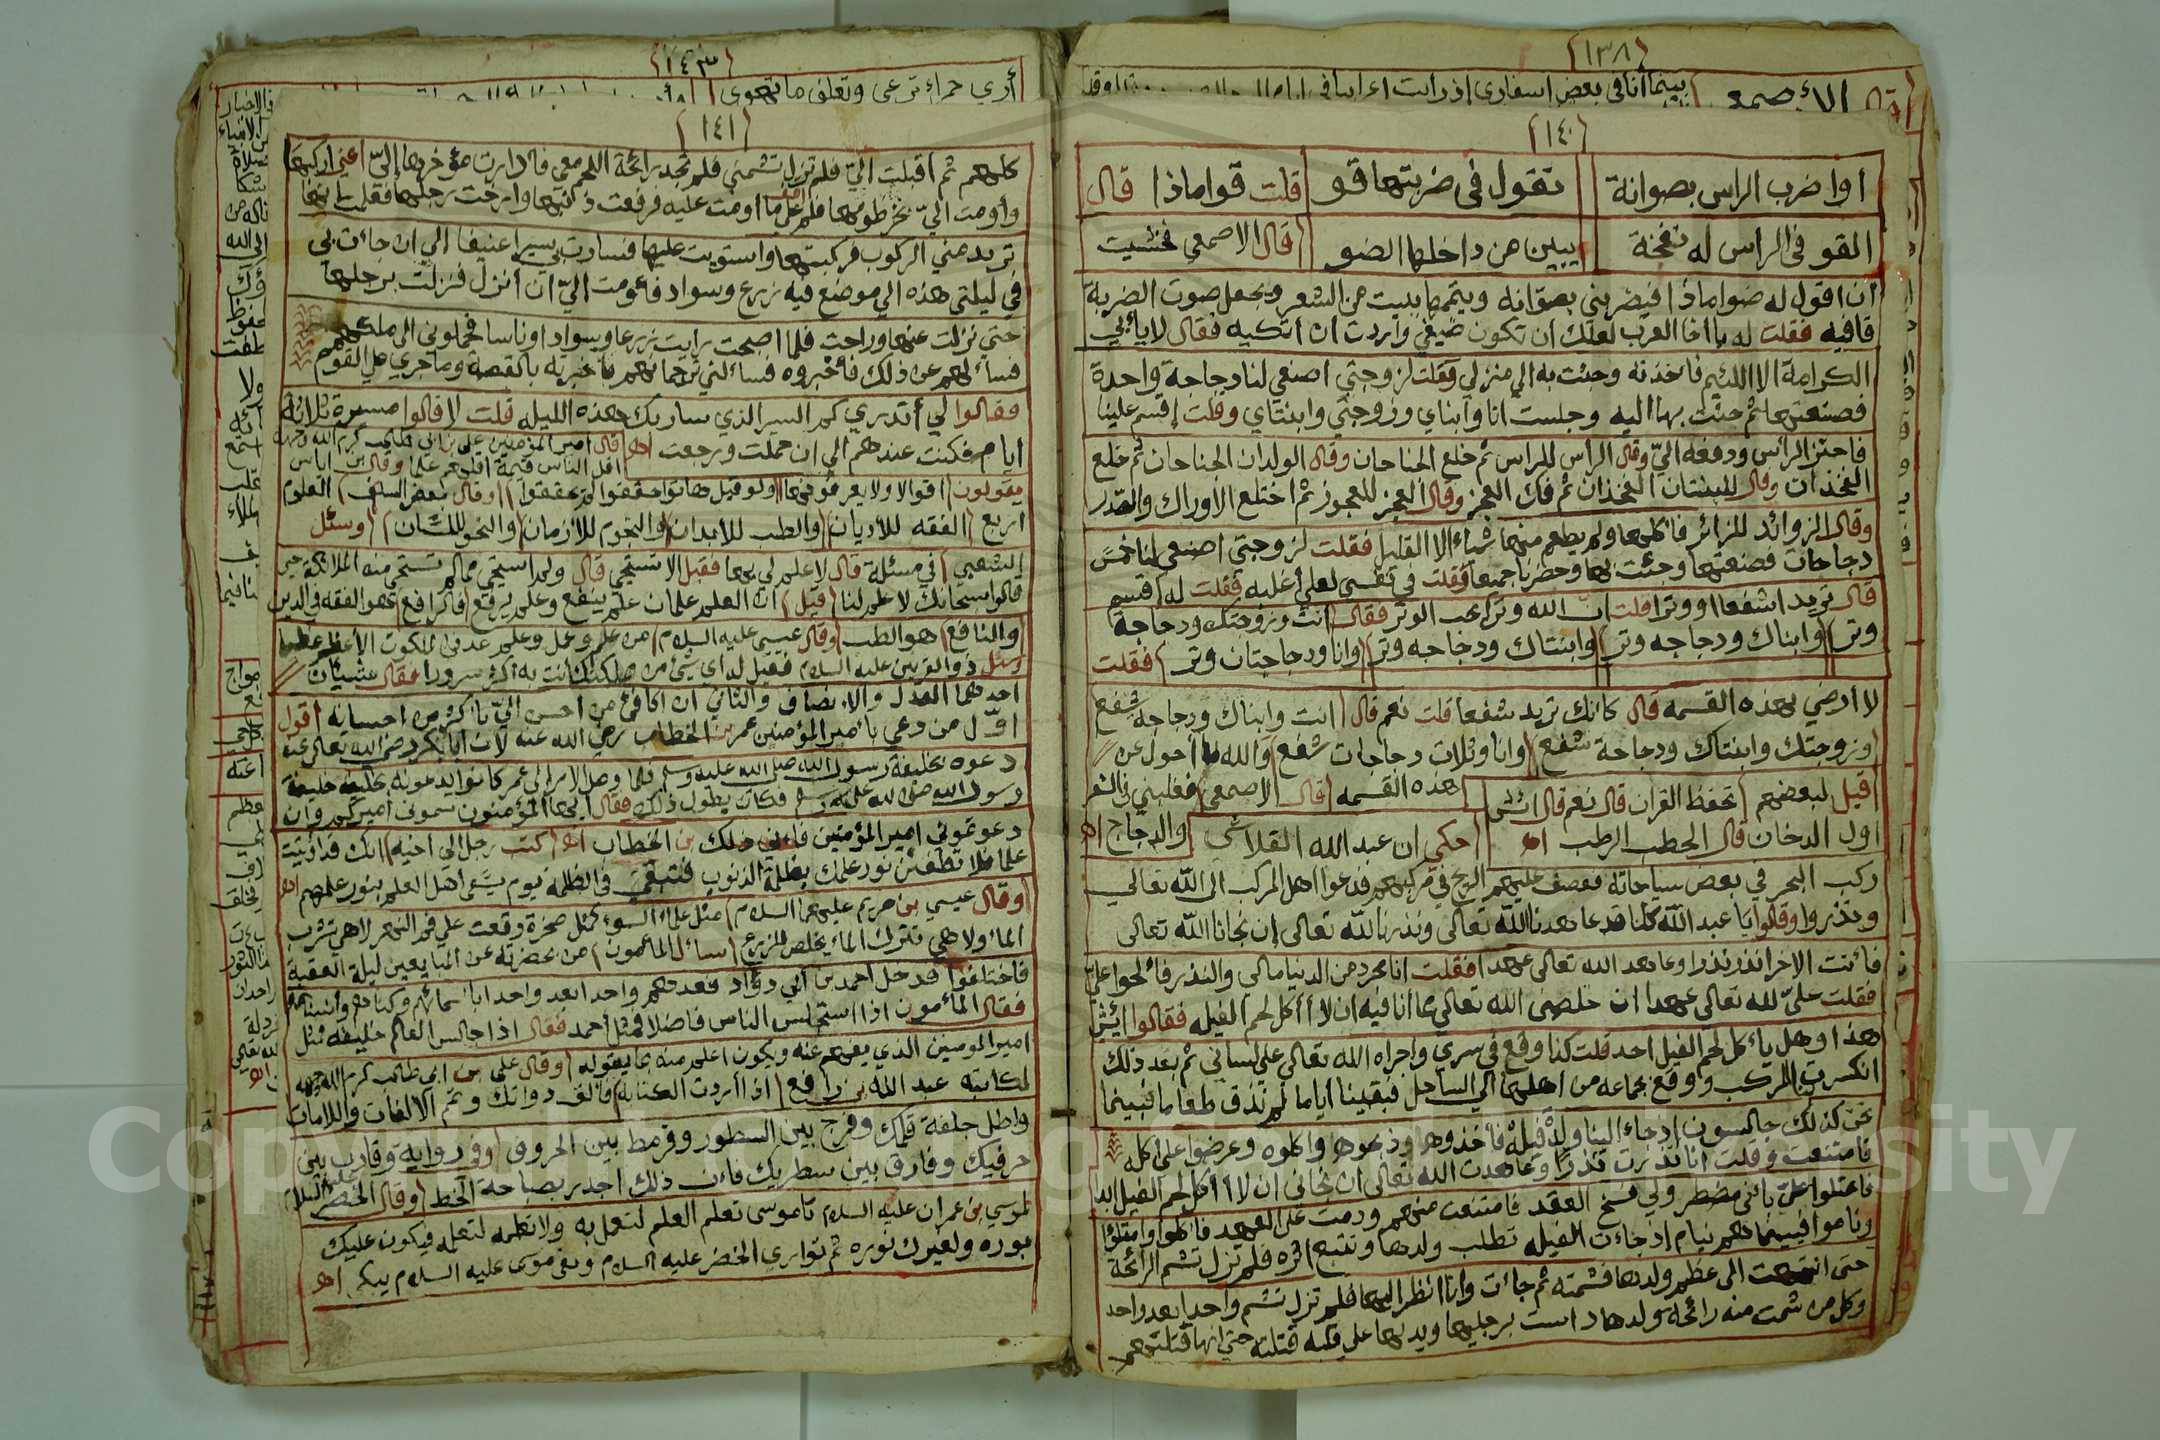 (١٣٨)
قال الأصمعي بينما أنا فى بعض اسفارى اذ رأيت اعرابيا فى
(١٤٠)
اوا ضرب الراس بصوانة تقول فى ضربتها قو قلت قو اماذا قال
القو فى الراس له نفخة يبين من داخلها الضو قال الاصمعي فخشيت
أن اقول له ضو اماذا فيضربني بصوانه ويتمها ببيت من الشعر ويجعل صوت الضربة
قافيه فقلت له يا اخا العرب لعلك ان تكون ضيفي واردت ان انكيه فقال لا يأبى
الكرامة الا اللئيم فاخذته وجئت به الى منزلي فقلت لزوجتي اصنعي لنا دجاجة واحدة
فصنعتها ثم جئت بها اليه وجلست انا وابناي وزوجتي وابنتاي وقلت اقسم علينا
فاحتز الرأس ودفعه اليّ وقال الرأس للراس ثم خلع الجناحان وقال الولدان الجناحان ثم خلع
الفخذان وقال للبنتان الفخذان ثم فك العجز وقال العجز للعجوز ثم اختلع الأوراك والصدر
وقال الزوائد للزائر فاكلها ولم يطعم منها شيأ الا القليل فقلت لزوجتي اصنعي لنا خمس
دجاجات فصنعتها وجئت بها وحضرنا جميعا وقلت في نفسي لعلي أغلبه فقلت له اقسم
قال تريد اشفعا او وترا قلت انّ الله وتر يحب الوتر فقال انت وزوجتك ودجاجة
وتر وابناك ودجاجه وتر وابنتاك ودجاجه وتر وانا ودجاجتان وتر فقلت
لا أرضى بهذه القسمه قال كانك تريد شفعا قلت نعم قال انت وابناك ودجاجة شفع
وزوجتك وابنتاك ودجاجة شفع وانا وثلاث دجاجات شفع والله ما أحول عن
هذه القسمه قال الاصمعي فغلبني فى الشعر
والدجاج اه
قيل لبعضهم تحفظ القران قال نعم قال ائش
اول الدخان قال الحطب الرطب اه
حكي ان عبد الله القلاسى
ركب البحر في بعض سياحاته فعصف عليهم الريح في مركبهم فدعوا اهل المركب الى الله تعالى
ونذروا وقالوا يا عبد الله كلنا قد عاهدنا الله تعالى ونذرنا لله تعالى إن نجانا الله تعالى
فأنت الاخر انذر نذرا وعاهد الله تعالى عهدا فقلت انا مجرد من الدنيا مالي والنذر فألحوا عليّ
فقلت عليّ لله تعالي عهدا ان خلصنى الله تعالي مما أنا فيه ان لا أأكل لحم الفيله فقالوا ائيش
هذا وهل يأكل لحم الفيل احد قلت كذا وقع في سري واجراه الله تعالي على لساني ثم بعد ذلك
انكسرت المركب ووقع بجماعه من اهلها الي الساحل فبقينا أياما لم نذق طعاما فبينما
نحن كذلك جالسون إذ جاء الينا ولد فيلة فأخذوها وذبحوها واكلوه وعرضوا على اكله
فامتنعت وقلت انا نذرت نذرا وعاهدت الله تعالى ان نجاني ان لا أأكل لحم الفيل ابدا
فاعتلوا عليّ بأني مضطر ولي فسخ العقد فامتنعت منهم ودمت على العهد فاكلوا وامتلؤا
وناموا فبينما هم نيام اذ جاءت الفيله تطلب ولدها وتتبع اثره فلم تزل تشم الرائحة
حتى انتهت الى عظم ولدها فشمته ثم جاءت وانا انظر اليها فلم تزل تشم واحدا بعد واحد
وكل من شمت منه رائحة ولدها داست برجليها ويديها على قتله حتى انها قتلتهم
(١٤٣)
أري حمراء ترعى وتعلف ما تهوى
(١٤١)
كلهم ثم اقبلت اليّ فلم تزل تشمني فلم تجد رائحة اللحم معي فادارت مؤخرها إليّ اعني اركبها
وأومت اليّ بخرطومها فلم اعلم ما أومت عليه فرفعت ذنبها وارخت رجليها فعلمت انها
تريد مني الركوب فركبتها واستويت عليها فسارت بي سيرا عنيفا الي ان جاءت بي
في ليلتى هذه الي موضع فيه زرع وسواد فأومت اليّ ان أنزل فنزلت برجلها
حتى نزلت عنها وراحت فلما اصبحت رايت زرعا وسوادا وناسا فحملوني الى ملكهم
فسألهم عن ذلك فأخبروه فسألني ترجمانهم فأخبرته بالقصة وما جري على القوم
فقالوا لي أتدري كم السير الذي سار بك هذه الليله قلت لا قالوا مسيرة ثلاثة
ايام فكنت عندهم الي ان حملت ورجعت اه قال امير المؤمنين علي بن ابي طالب كرم الله وجهه
اقل الناس قيمة اقلهم علما وقال بن اياس
يقولون اقوالا ولا يعرفونها ولو قيل هاتوا حققوا لم يحققوا وقال بعض السلف العلوم
اربع الفقه للأديان والطب للأبدان والنجوم للأزمان والنحو للسّان وسئل
الشعبي في مسئلة قال لا علم لي بها فقيل الا تستحي قال ولم استحي مما لم تستحي منه الملائكة حين
قالوا سبحانك لا علم لنا قيل ان العلم علمان علم ينفع وعلم يرفع فالرافع هو الفقه في الدين
والنافع هو الطب وقال عيسى عليه السلام من علم وعمل وعلم عد في الملكوت الأعظم عظيما
وسئل ذو القرنين عليه السلام فقيل له أي شيء من ملكك انت به اكثر سرورا فقال شيئان
احدهما العدل والانصاف والثاني ان اكافئ من احسن اليّ باكثر من احسانه اقول
اوّل من دعي بأمير المؤمنين عمر بن الخطاب رضي الله عنه لان أبا بكر رضي الله تعالى عنه
دعوه خليفة رسول الله صلى الله عليه وسلم فلما وصل الامر إلى عمر كانوا يدعونه خليفة خليفة
رسول الله صلى الله عليه وسلم فكان يطول ذلك فقال أيها المؤمنون سموني اميركم وان
دعوتموني امير المؤمنين فأنى ذلك بن الخطاب اه كتب رجل الى اخيه انك قد اوتيت
علما فلا تطفئن نور علمك بظلمة الذنوب فتبقى في الظلمة يوم يسعى أهل العلم بنور علمهم اه
وقال عيسى بن مريم عليهما السلام مثل علماء السوء كمثل صخرة وقعت على فم النهر لا هي تشرب
الماء ولا هي تترك الماء يخلص للزرع سأل المأمون من بحضرته عن المبايعين ليلة العقبة
فاختلفوا فدخل احمد بن أبي دؤاد فعدهم واحدا بعد واحد ابأسمائهم وكناهم وأنسابهم
فقال المأمون اذا استجلس الناس فاضلا فمثل أحمد فقال اذا جالس العالم خليفه فمثل
امير المومنين الذي يفهم عنه ويكون اعلم منه بما يقوله وقال على بن ابي طالب كرم الله وجهه
لكاتبه عبد الله بن رافع اذا أردت الكتابة فألق دواتك وتمم الالفات واللامات
واطل جلفة قلمك وفرج بين السطور وقرمط بين الحروف وفي رواية وقارب بين
حرفيك وفارق بين سطريك فان ذلك اجدر بصباحة الخط وقال الخضر عليه السلام
لموسي بن عمران عليه السلام ياموسى تعلم العلم لتعمل به ولا تعلمه لتعلمه فيكون عليك
بوره ولغيرك نوره ثم توارى الخضر عليه السلام وبقى موسى عليه السلام يبكى اه
Copyright © King Saud University